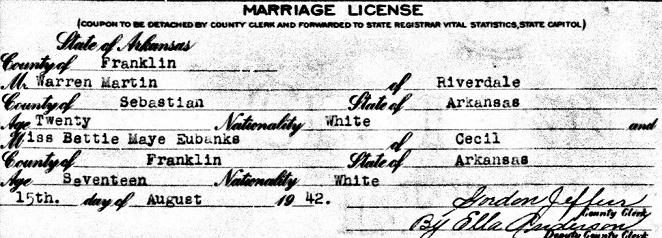 MARRIAGE LICENSE
(COUPON TO BE DETACHED BY COUNTY CLERK AND FORWARDED TO STATE REGISTRAR VITAL STATISTICS, STATE CAPITOL)
State of Arkansas
County of Franklin
Mr. Warren Martin of Riverdale
County of Sebastian State of Arkansas
Age Twenty Nationality White and
Miss Bettie Maye Eubanks of Cecil
County of Franklin State of Arkansas
Age Seventeen Nationality White
15th. day of August 19 42.
Gordon
County Clerk
By Ella Anderson
Deputy County Clerk